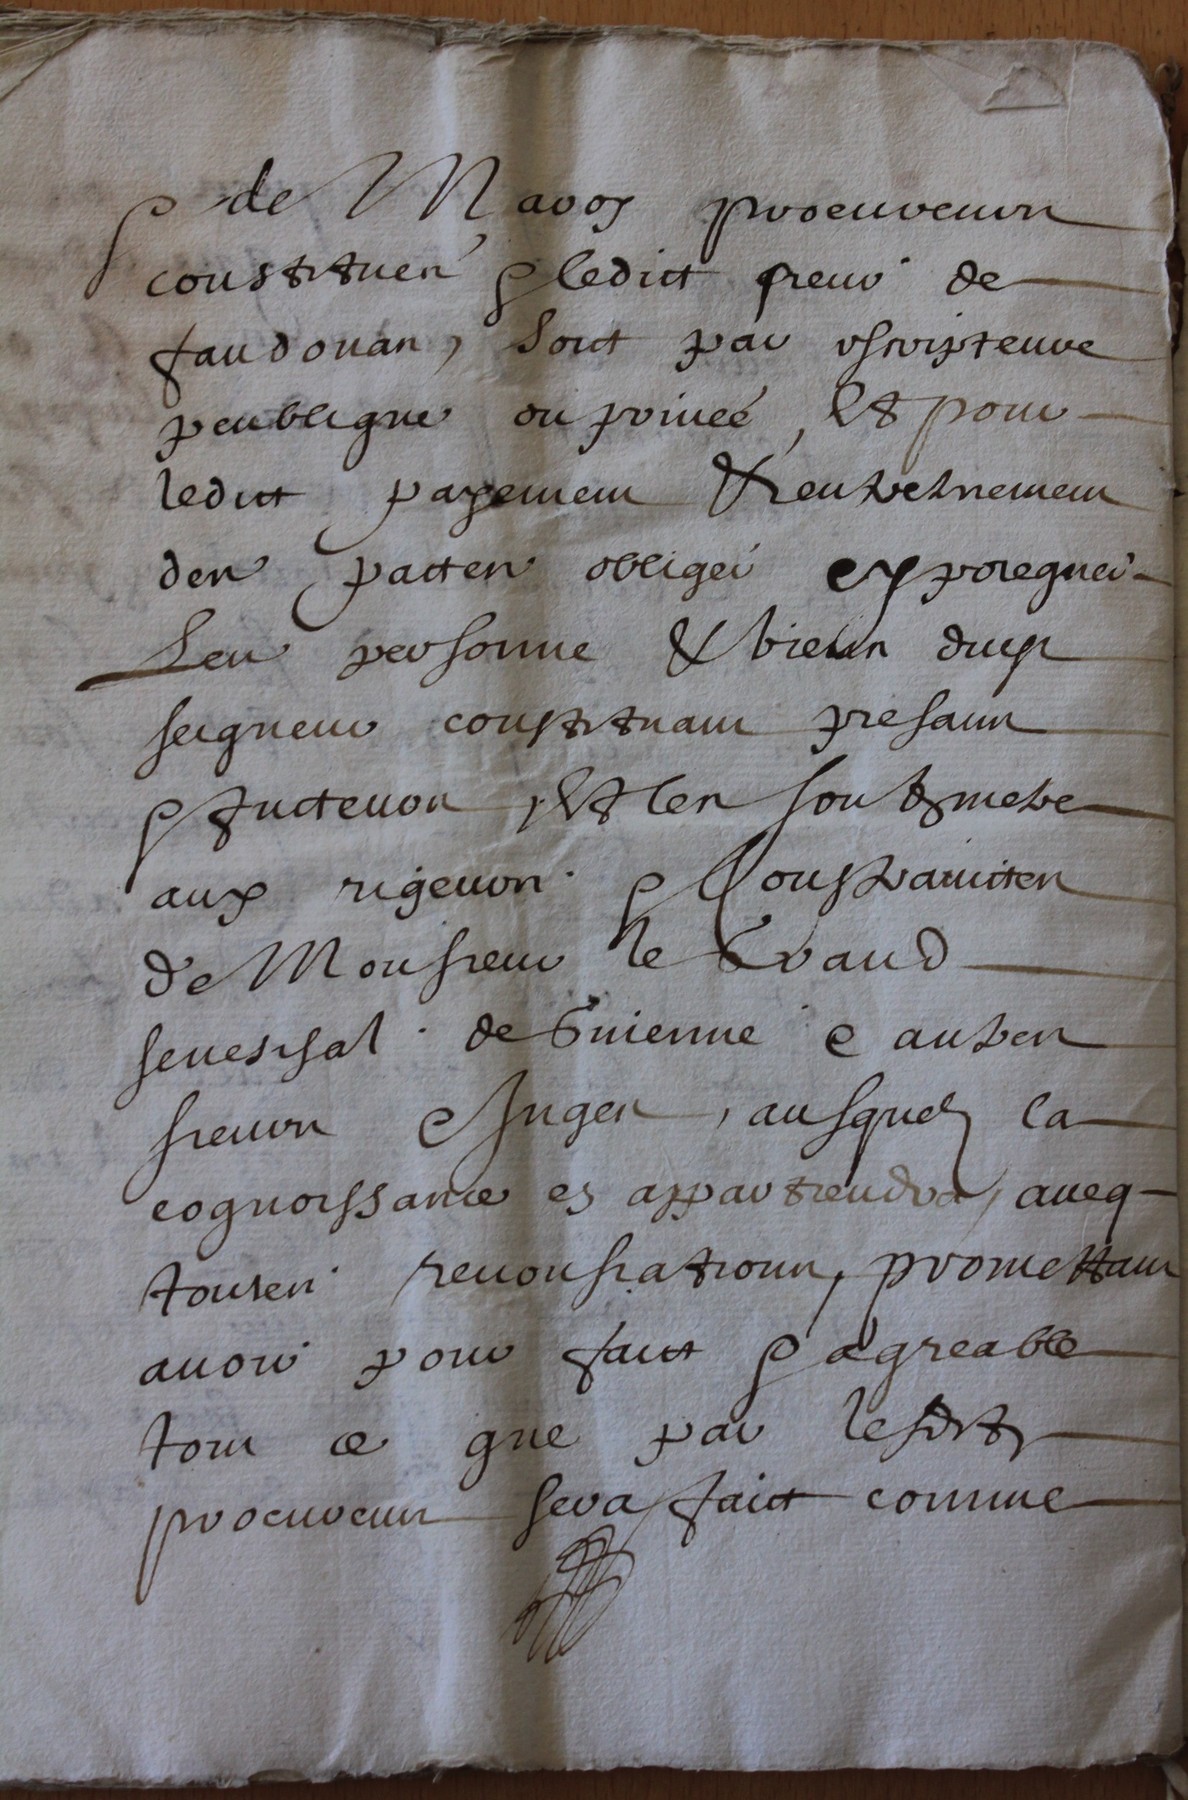 & de Mavos procureurs
constitués & ledict sieur de
faudouas, soict par escripteure
publique ou privée, Et pour
ledict payement & entretenement
des pactes obliger et yppotequer
les personne & biens dudit
seigneur constituant presans
& futeurs, Et les soubzmetre
aux rigeurs & constrainctes
de Monsieur le Grand
seneschal de Guienne & autres
sieurs & Juges, ausquelz la
cognoissance en appartiendra, aueq
toutes renonsiations, promettant
auoir pour faict & agreable
tout ce que par lesditz
procureurs sera faict comme